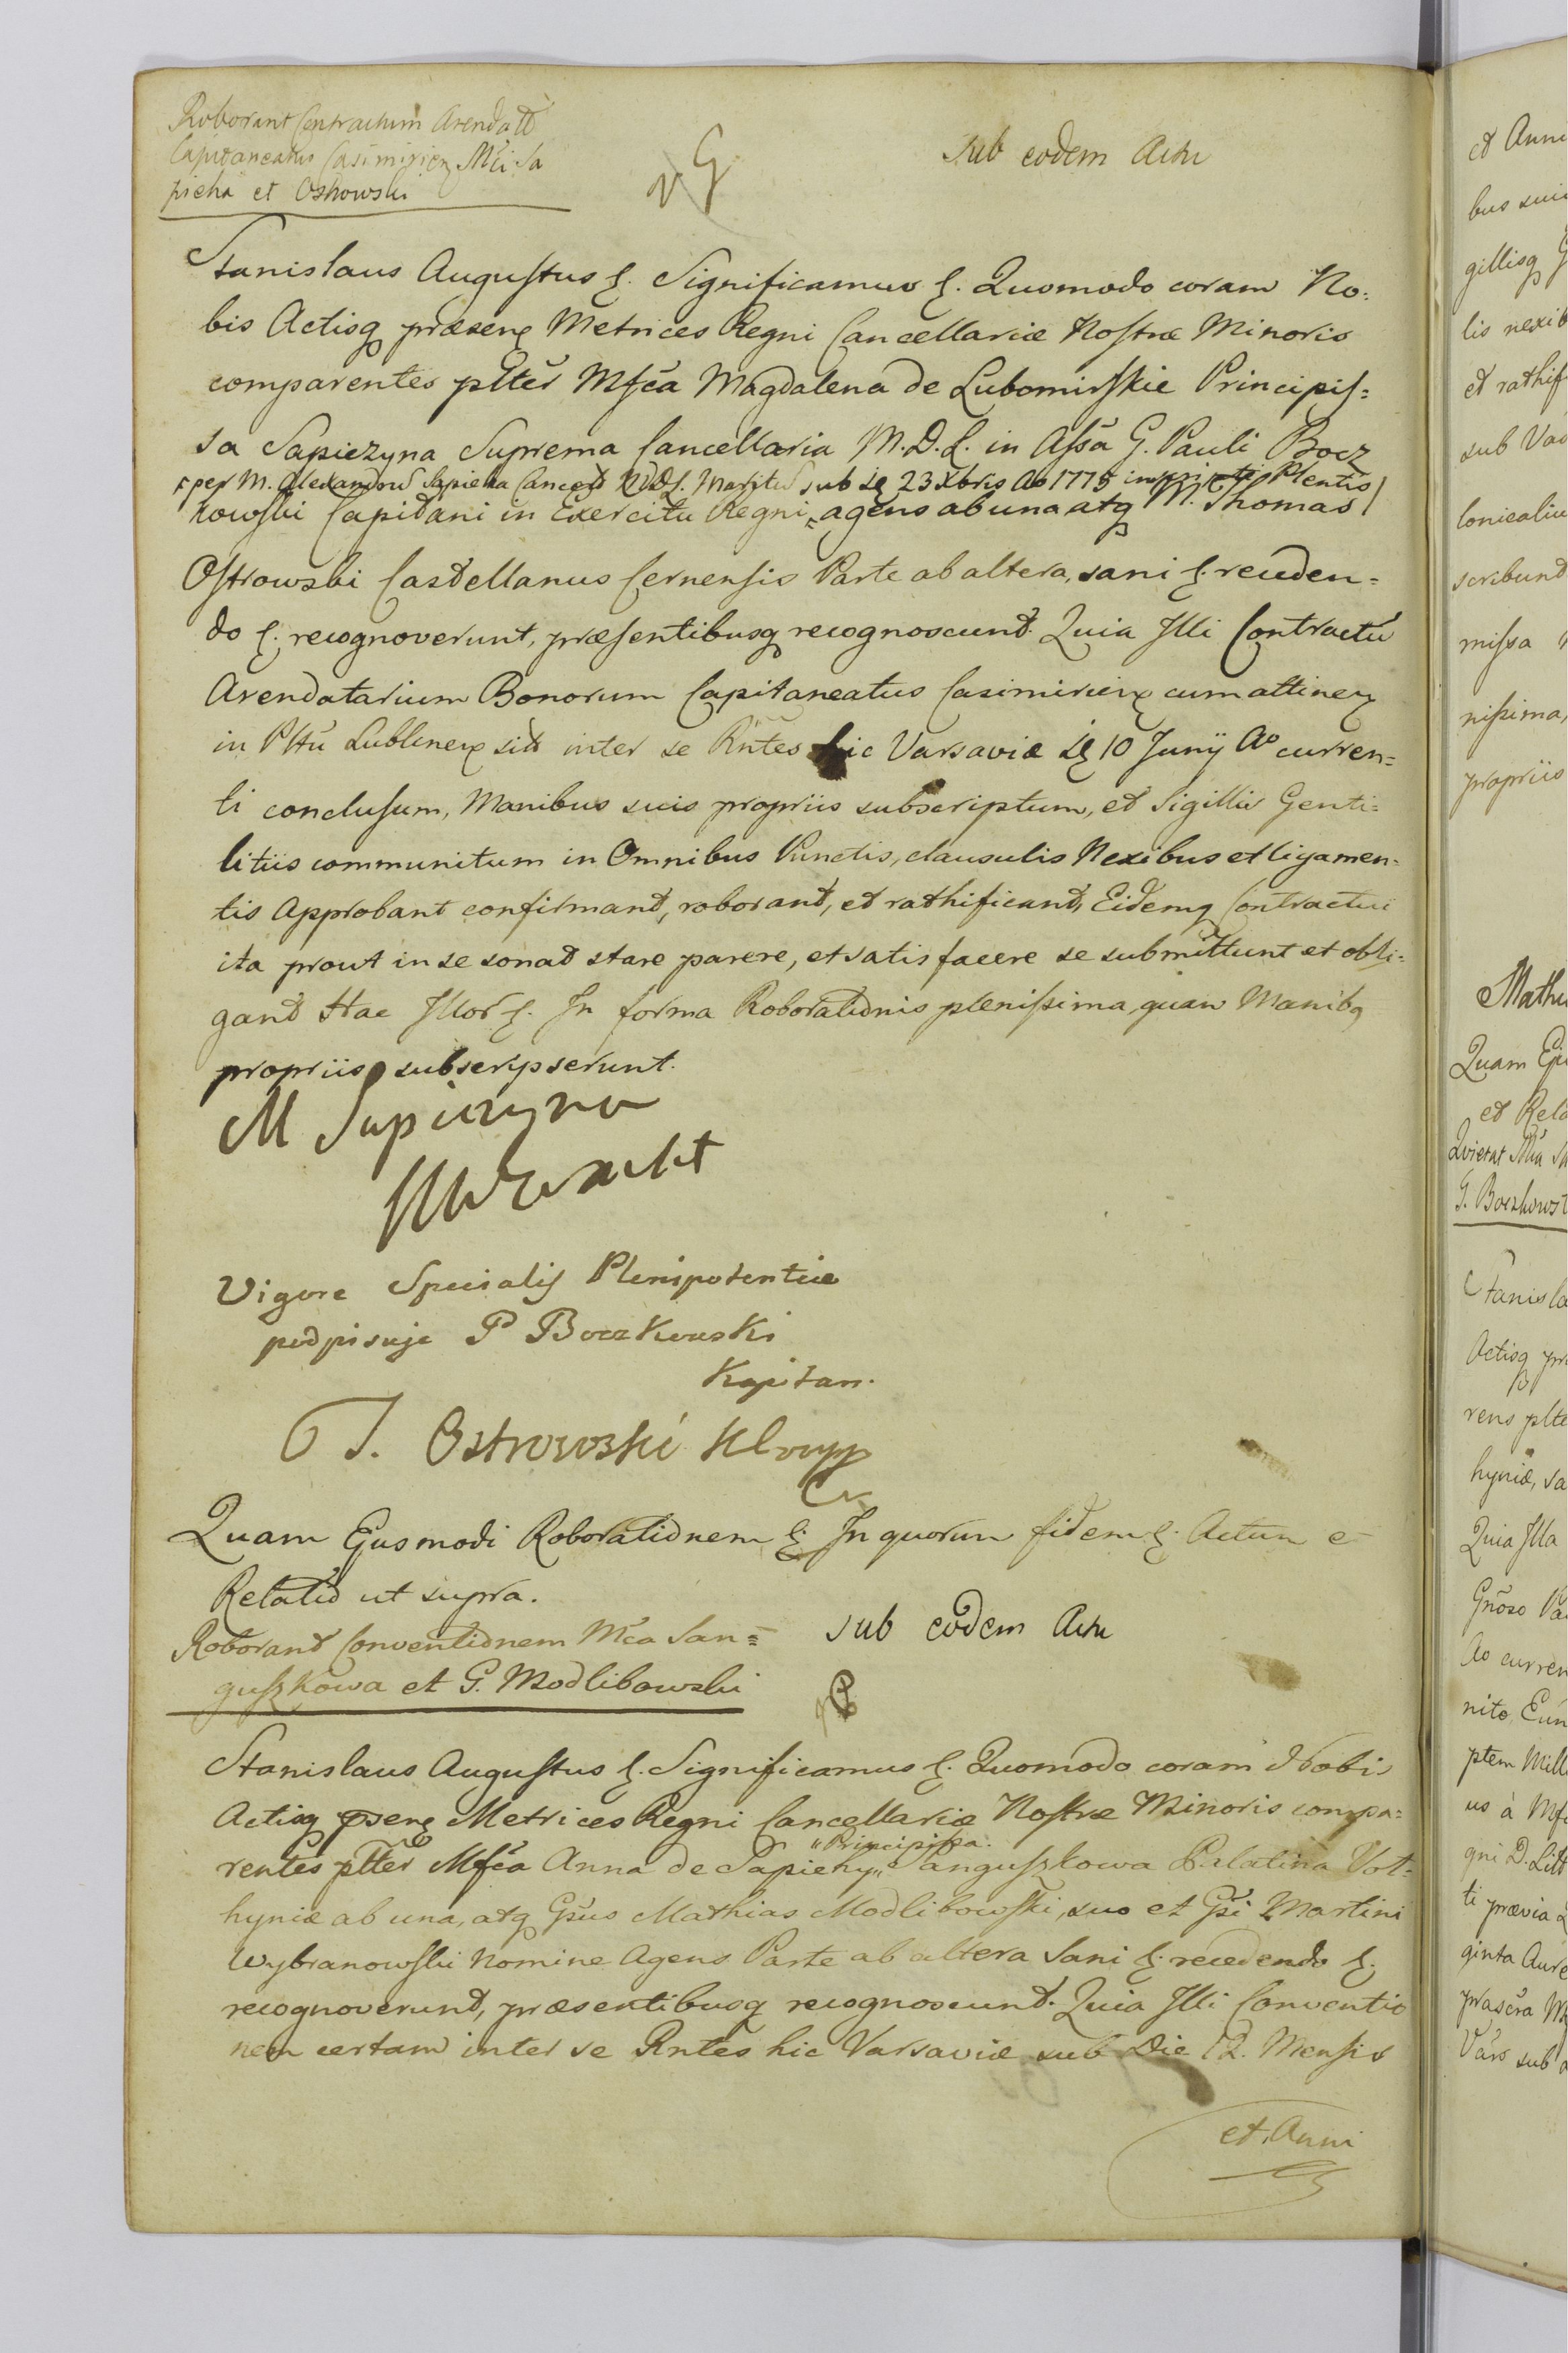 Roborant Contractum Arendatt
Capitaneatus Casimirien Mci Sa
pieha et Ostrowski
Sub eodem Actu
Stanislaus Augustus &. Significamus &. Quomodo coram No:
bis Actisq præsenz Metrices Regni Cancellariæ Nostræ Minoris
comparentes pltter Mfca Magdalena de Lubomirskie Principis=
sa Sapiezyna Suprema Cancellaria M.D.L. in Assa G. Pauli Bocz
per M. Alexandrū Sapieha Cancell M.D.L. Maritū sub de 23 Xbris Ao 1775 Plentis
kowski Capitani in Exercitu Regni, agens ab una atq M. Thomas
Ostrowski Castellanus Cernensis Parte ab altera, sani &. receden=
do &. recognoverunt, præsentibusq recognoscunt. Quia Illi Contractū
Arendatarium Bonorum Capitaneatus Casimirienz cum attinenz
in Pttū Lublinenz sit inter se Rntes hic Varsaviæ de 10 Junÿ Ao curren=
ti conclusum, Manibus suis propriis subscriptum, et Sigillis Genti=
litiis communitum in Omnibus Punctis, clausulis Nexibus et ligamen=
tis Approbant confirmant, roborant, et rathificant, Eidemq Contractui
ita prout in se sonat stare parere, et satis facere se submittunt et obli=
gant Hac Illor &. In forma Roborationis plenissima, quam Manibq
propriis subscripserunt.
M Sapiezyna
Vigore Specialis Plenipotentiæ
podpisuje P Boczkowski
Kapitan.
T. Ostrowski
Quam Ejusmodi Roborationem &. In quorum fidem &. Actum e
Relatio ut supra.
Roborant Conventionem Mca San=
guszkowa et G. Modlibowski
Sub eodem Actu
Stanislaus Augustus &. Significamus &. Quomodo coram Nobis
Actisq psenz Metrices Regni Cancellariæ Nostræ Minoris compa=
rentes pltter Mfca Anna de Sapiehy „Principissa„ Sanguszkowa Palatina Vol=
hyniæ ab una, atq Gsus Mathias Modlibowski, suo et Gsi Martini
Wybranowski Nomine Agens Parte ab altera Sani &. recedendo &.
recognoverunt, præsentibusq recognoscunt. Quia Illi Conventio
nem certam inter se Rntes hic Varsaviæ sub Die 12. Mensis
et Anni
et Anni
bus suis
gillisq
lis nexib
et rathif
sub
scribunt
missa
nissima,
propriis
Quam
et Rela
Quietat
G. Boczkowsk
Stanisla
Actisq
rens
hyniæ, sa
Quia Illa
Gnoso
Ao curren
nito
ptem Mill
us à
gni D. Litt
ti prævia
ginta Aure
Vars sub